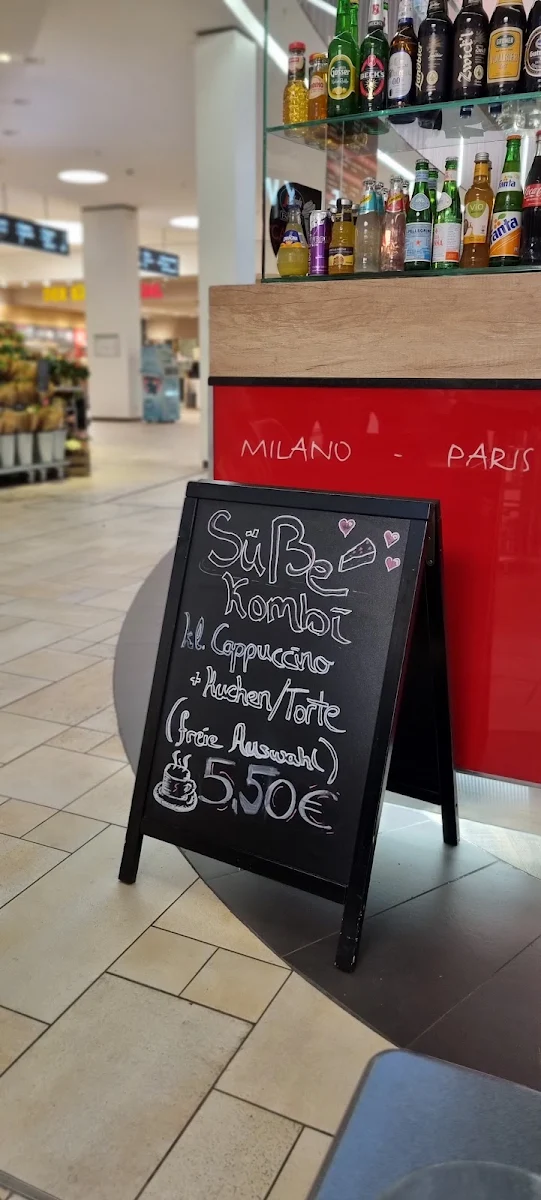 Gösser
BECK'S
Zwickl
VIO
fanta
Fanta
S.PELLEGRINO
MILANO - PARIS
Süße
Kombi
kl. Cappuccino
+ Kuchen/Torte
(freie Auswahl)
5,50€